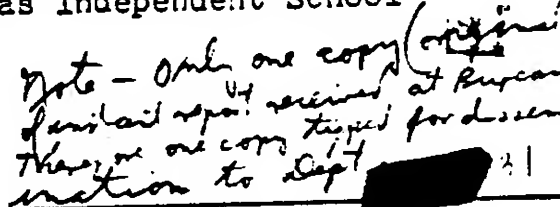 as Independent School
Note - Only one copy (original
of instant report received at Bureau
Therefore one copy typed for dissem
ination to Dept
31